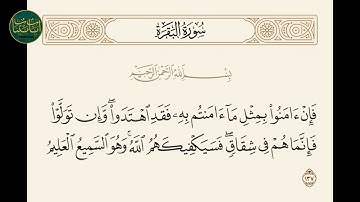 سُورَةُ البَقَرَةِ
بِسْمِ اللَّهِ الرَّحْمَٰنِ الرَّحِيمِ
فَإِنْ ءَامَنُوا۟ بِمِثْلِ مَآ ءَامَنتُم بِهِۦ فَقَدِ ٱهْتَدَوا۟ ۖ وَّإِن تَوَلَّوْا۟
فَإِنَّمَا هُمْ فِى شِقَاقٍ ۖ فَسَيَكْفِيكَهُمُ ٱللَّهُ ۚ وَهُوَ ٱلسَّمِيعُ ٱلْعَلِيمُ
١٣٧